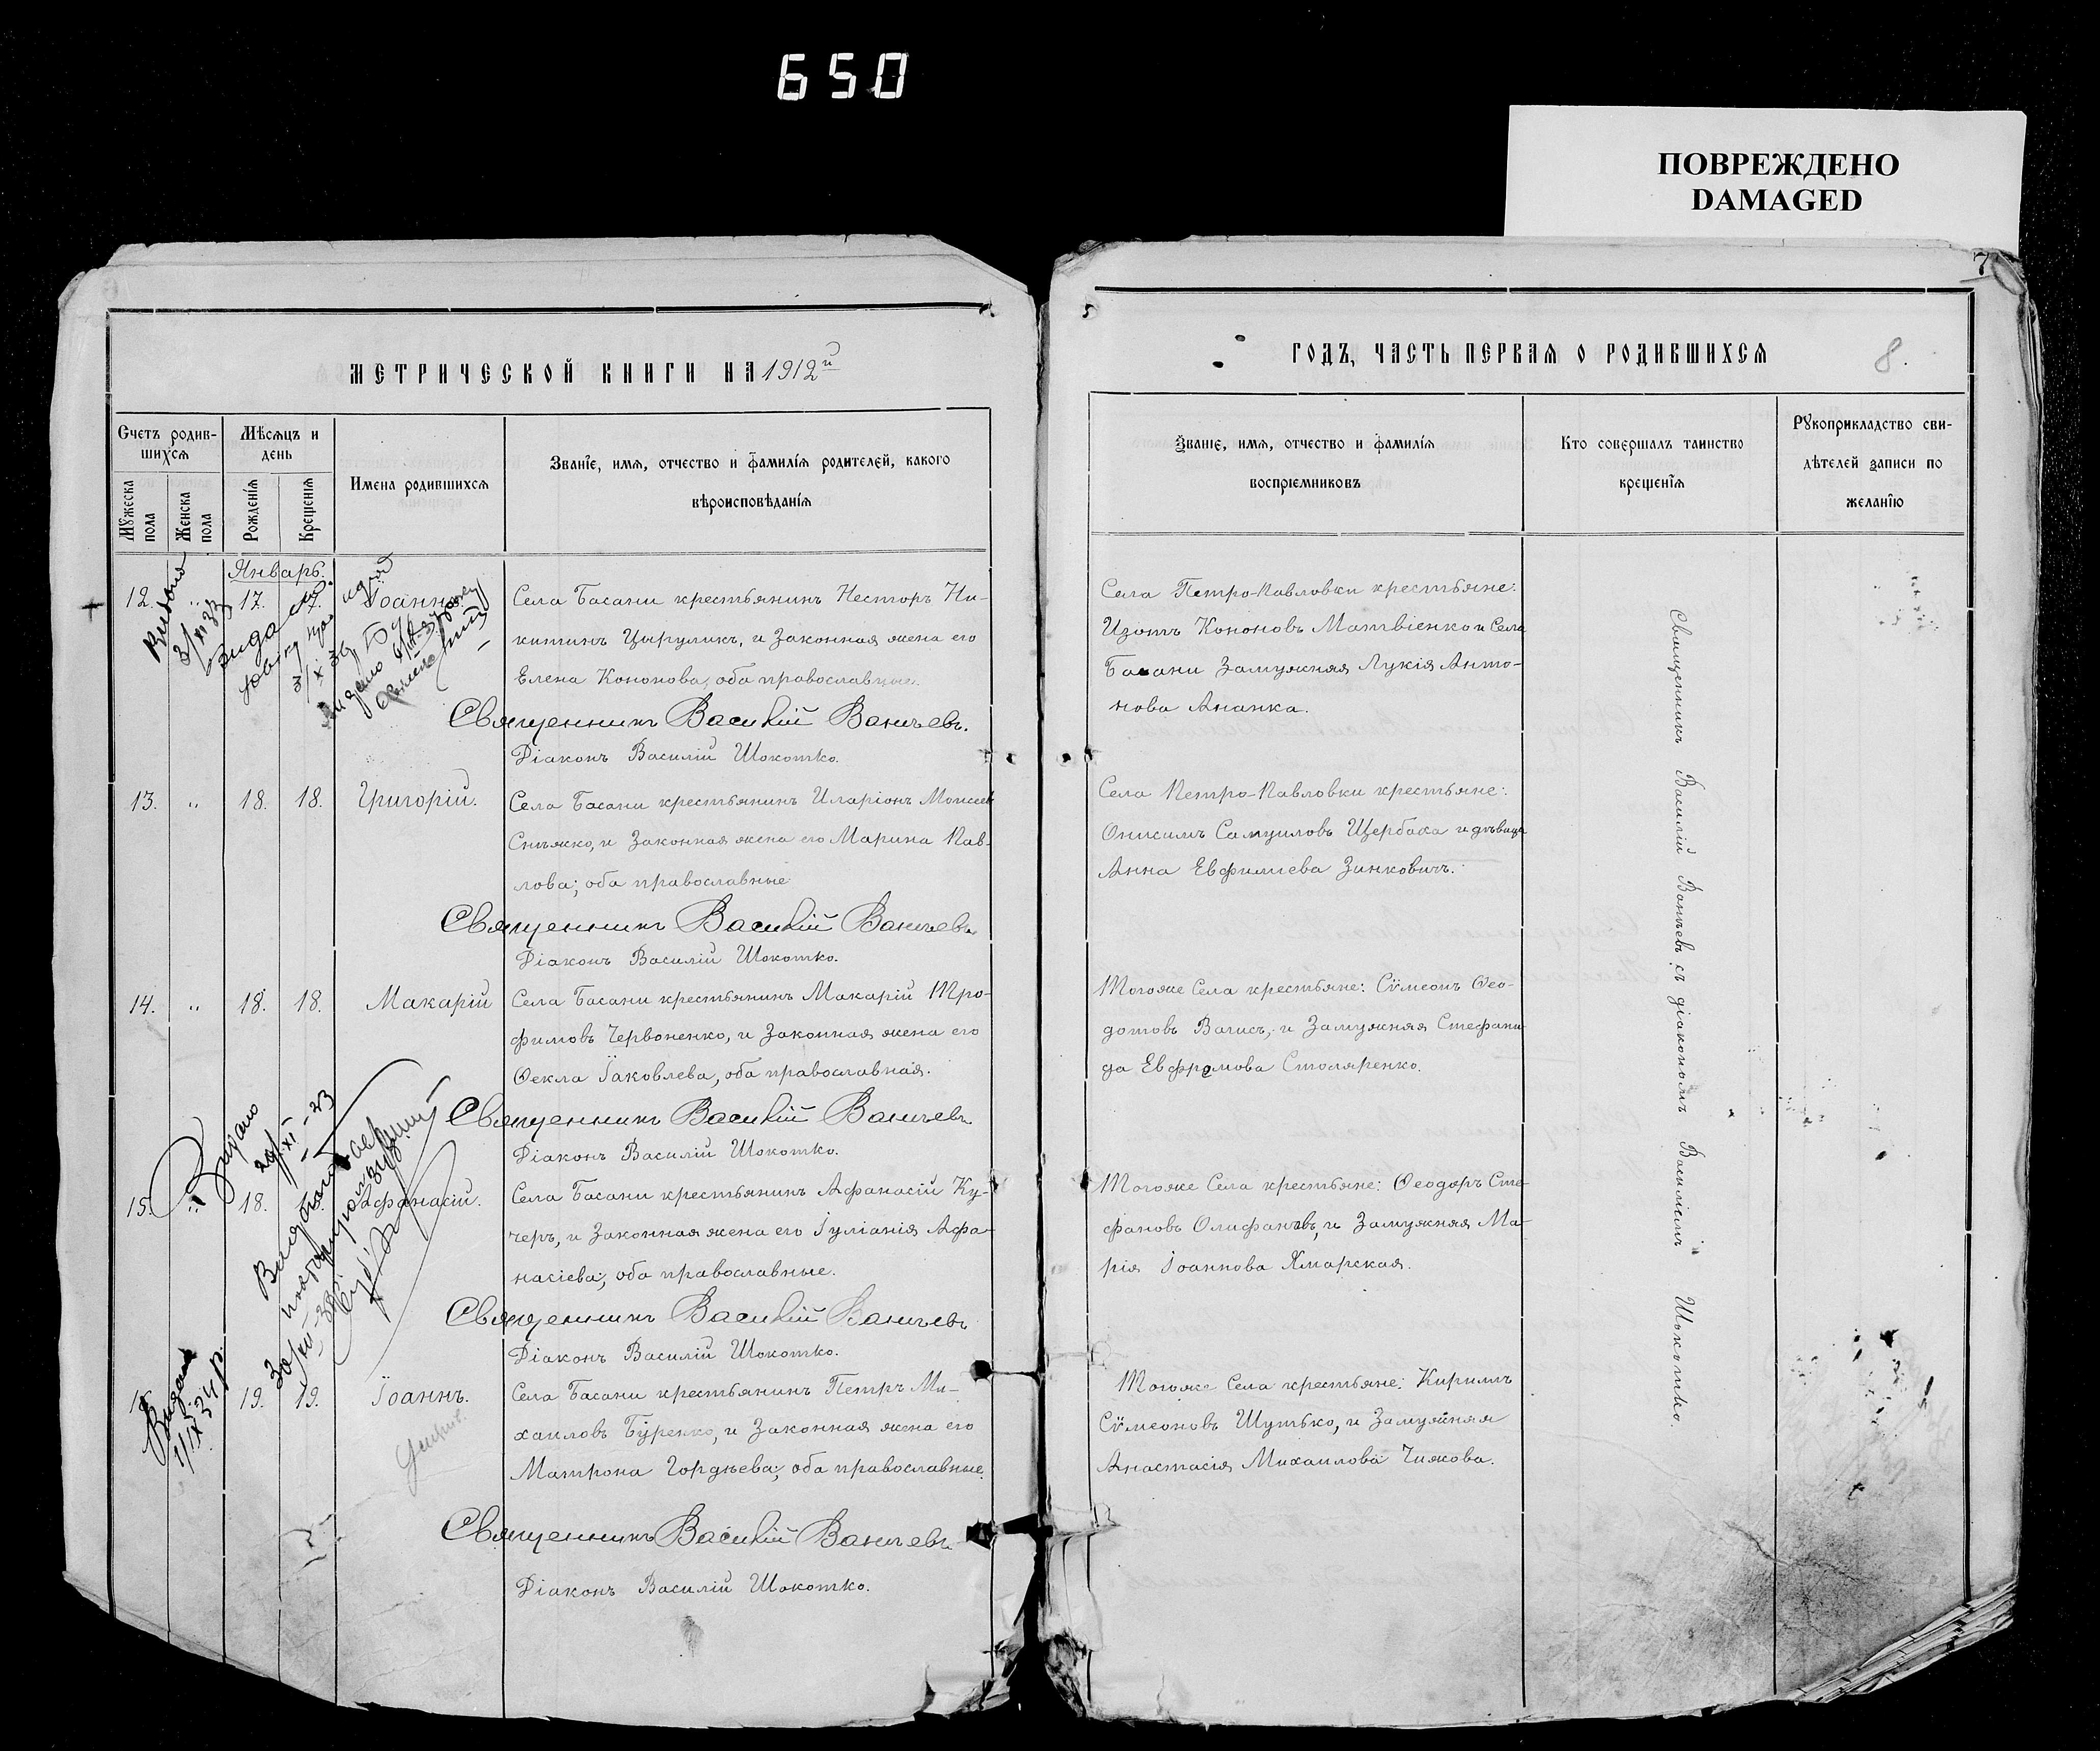 650
ПОВРЕЖДЕНО
DAMAGED
7
МЕТРИЧЕСКОЙ КНИГИ НА 1912й
Счетъ родив-
шихся
Мѣсяцъ и
день
Имена родившихся
Званіе, имя, отчество и фамилія родителей, какого
вѣроисповѣданія
Мужеска
пола
Женска
пола
Рожденія
Крещенія
Январь.
12. " 17. 17. Іоаннъ.
Села Басани крестьянинъ Несторъ Ни-
китинъ Цырулик, и законная жена его
Елена Кононова, оба православные.
Священникъ Василій Ваничевъ.
Діаконъ Василій Шокотко.
13. " 18. 18. Григорій.
Села Басани крестьянинъ Иларіонъ Моисеев
Снѣжко, и законная жена его Марина Пав-
лова; оба православные
Священникъ Василій Ваничевъ
Діаконъ Василій Шокотко.
14. " 18. 18. Макарій
Села Басани крестьянинъ Макарій Тро-
фимовъ Червоненко, и законная жена его
Ѳекла Іаковлева, оба православная.
Священникъ Василій Ваничевъ
Діаконъ Василій Шокотко.
Выдано
15. " 18. Афанасій.
Села Басани крестьянинъ Афанасій Ку-
черъ, и законная жена его Іуліанія Афа-
насіева; оба православные.
Священникъ Василій Ваничевъ
Діаконъ Василій Шокотко.
19. 19. Іоаннъ.
Села Басани крестьянинъ Петръ Ми-
хаиловъ Буренко, и законная жена его
Матрона Гордѣева; оба православные.
Священникъ Василій Ваничевъ
Діаконъ Василій Шокотко.
ГОДЪ, ЧАСТЬ ПЕРВАЯ О РОДИВШИХСЯ
8.
Званіе, имя, отчество и фамилія
воспріемниковъ
Кто совершалъ таинство
крещенія
Рукоприкладство сви-
дѣтелей записи по
желанію
Села Петро-Павловки крестьяне:
Изотъ Кононовъ Матвіенко и Села
Басани замужняя Лукія Анто-
нова Ананка.
Села Петро-Павловки крестьяне:
Онисимъ Самуиловъ Щербака и дѣвица
Анна Евфиміева Зинковичъ.
Тогоже Села крестьяне: Сѵмеонъ Ѳео-
дотовъ Вагисъ, и замужняя Стефани-
да Евфремова Столяренко.
Тогоже Села крестьяне: Ѳеодоръ Сте-
фановъ Олифановъ, и замужняя Ма-
рія Іоаннова Хмарская.
Тогоже Села крестьяне: Кирилъ
Сѵмеоновъ Шутько, и замужняя
Анастасія Михаилова Чижова.
Священникъ Василій Ваничевъ съ діакономъ Василіемъ Шокотко.